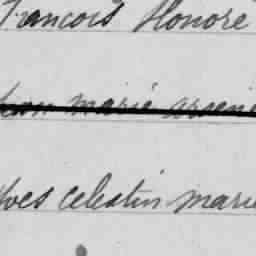 François Honoré
marie arsène
Yves Celestin marie